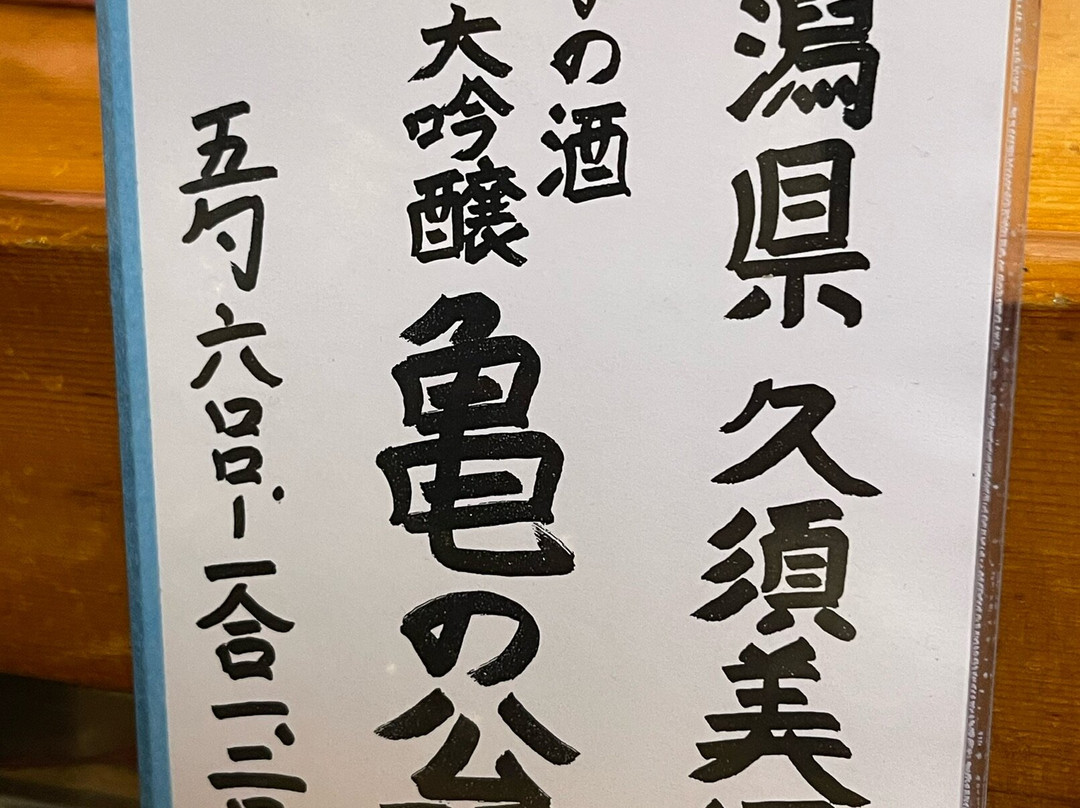 潟県 久須美
の酒
大吟醸 亀の公
五勺 六〇〇.- 一合 一、二